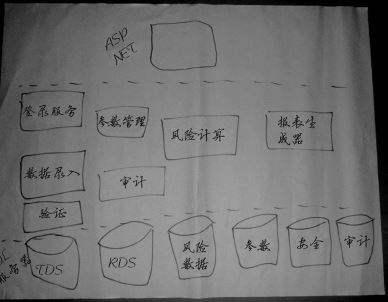 ASP
NET
登录服务
参数管理
风险计算
报表生
成器
数据录入
审计
验证
TDS
RDS
风险
数据
参数
安全
审计